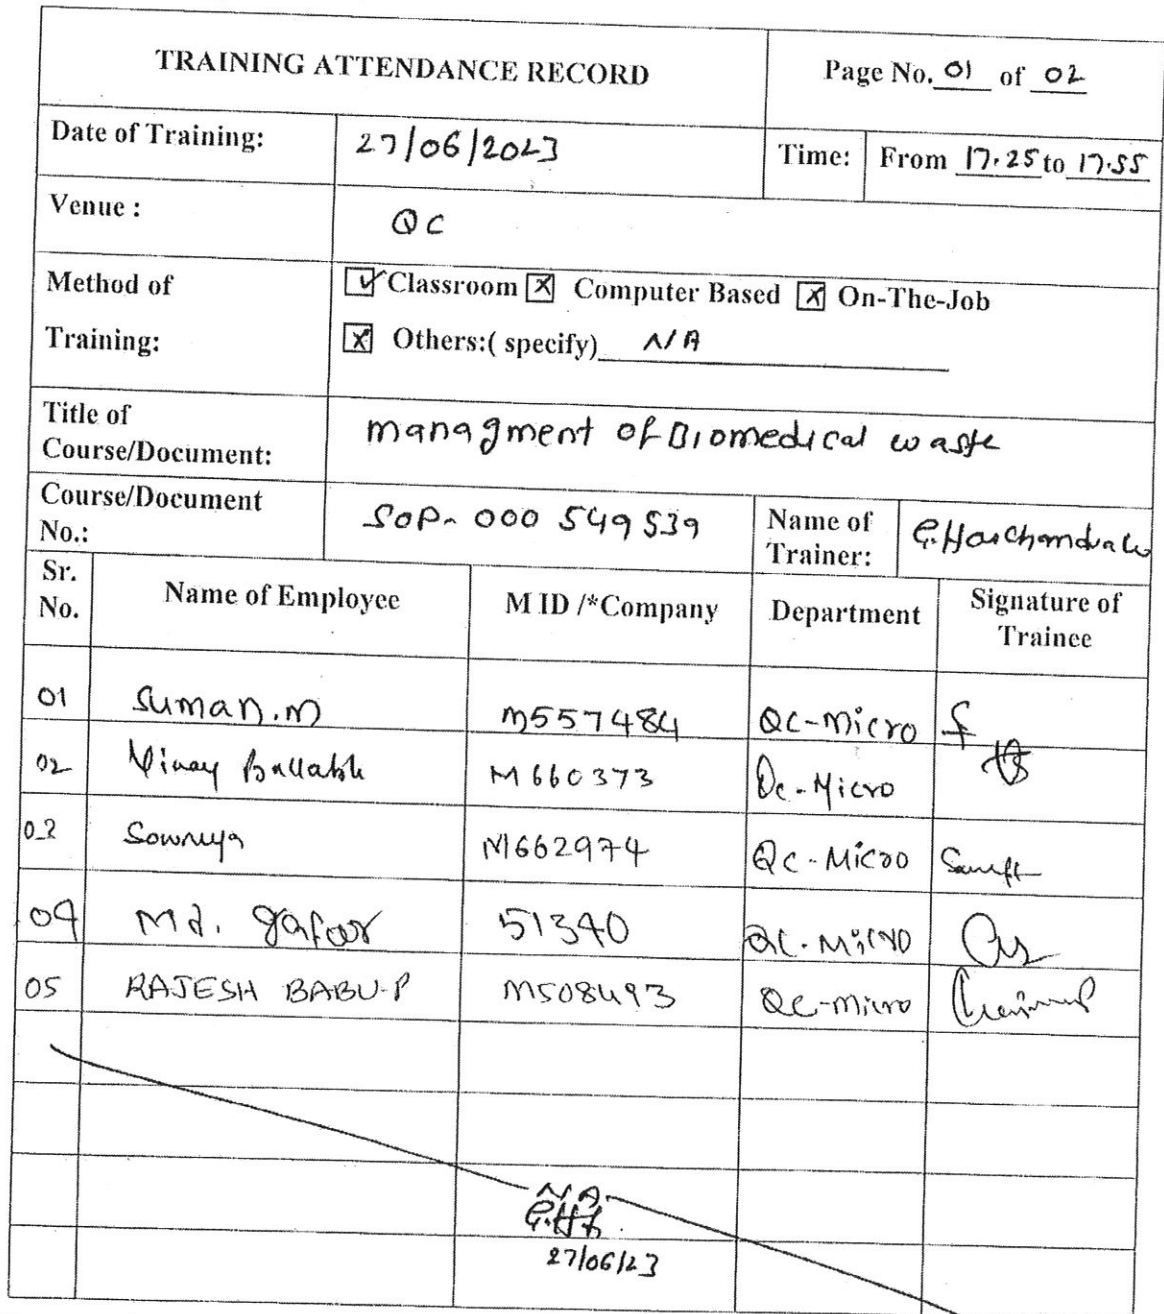 TRAINING ATTENDANCE RECORD
Page No. 01 of 02
Date of Training:
27/06/2023
Time:
From 17.25 to 17.55
Venue :
QC
Method of
Training:
Classroom Computer Based On-The-Job
Others:( specify) N/A
Title of
Course/Document:
managment of Biomedical waste
Course/Document
No.:
SOP- 000 549539
Name of
Trainer:
Sr.
No.
Name of Employee
M ID /*Company
Department
Signature of
Trainee
01 Suman.m M557484 QC-Micro
02 Vinay Ballabh M660373 Qc-Micro
03 Sowmya M662974 Qc-Micro
04 Md. gafoor 51340 QC-Micro
05 RAJESH BABU.P M508493 QC-Micro
NA
27/06/23